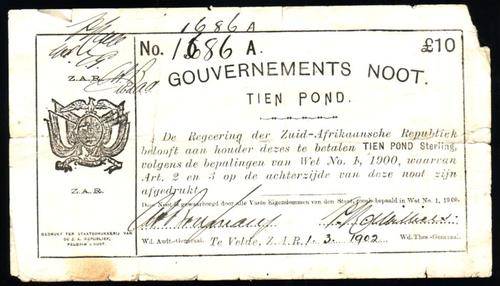 1686 A
No. 1686 A. £10
Z.A.R.
GOUVERNEMENTS NOOT.
TIEN POND.
De Regeering der Zuid-Afrikaansche Republiek
belooft aan houder dezes te betalen TIEN POND Sterling,
volgens de bepalingen van Wet No. 1, 1900, waarvan
Art. 2 en 3 op de achterzijde van deze noot zijn
afgedrukt.
Z.A.R.
Deze Noot is gewaarborgd door alle Vaste Eigendommen van den Staat, zooals bepaald in Wet No. 1, 1900.
GEDRUKT TER STAATSDRUKKERIJ VAN
DE Z. A. REPUBLIEK,
PELGRIM'S RUST.
Wd. Audt.-Generaal. Te Velde, Z.A.R. 1. 3. 1902 Wd. Thes.-Generaal.